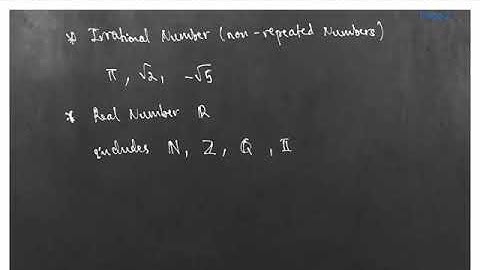 * Irrational Number (non-repeated Numbers)
π, √2, -√5
* Real Number ℝ
includes ℕ, ℤ, ℚ, 𝕀